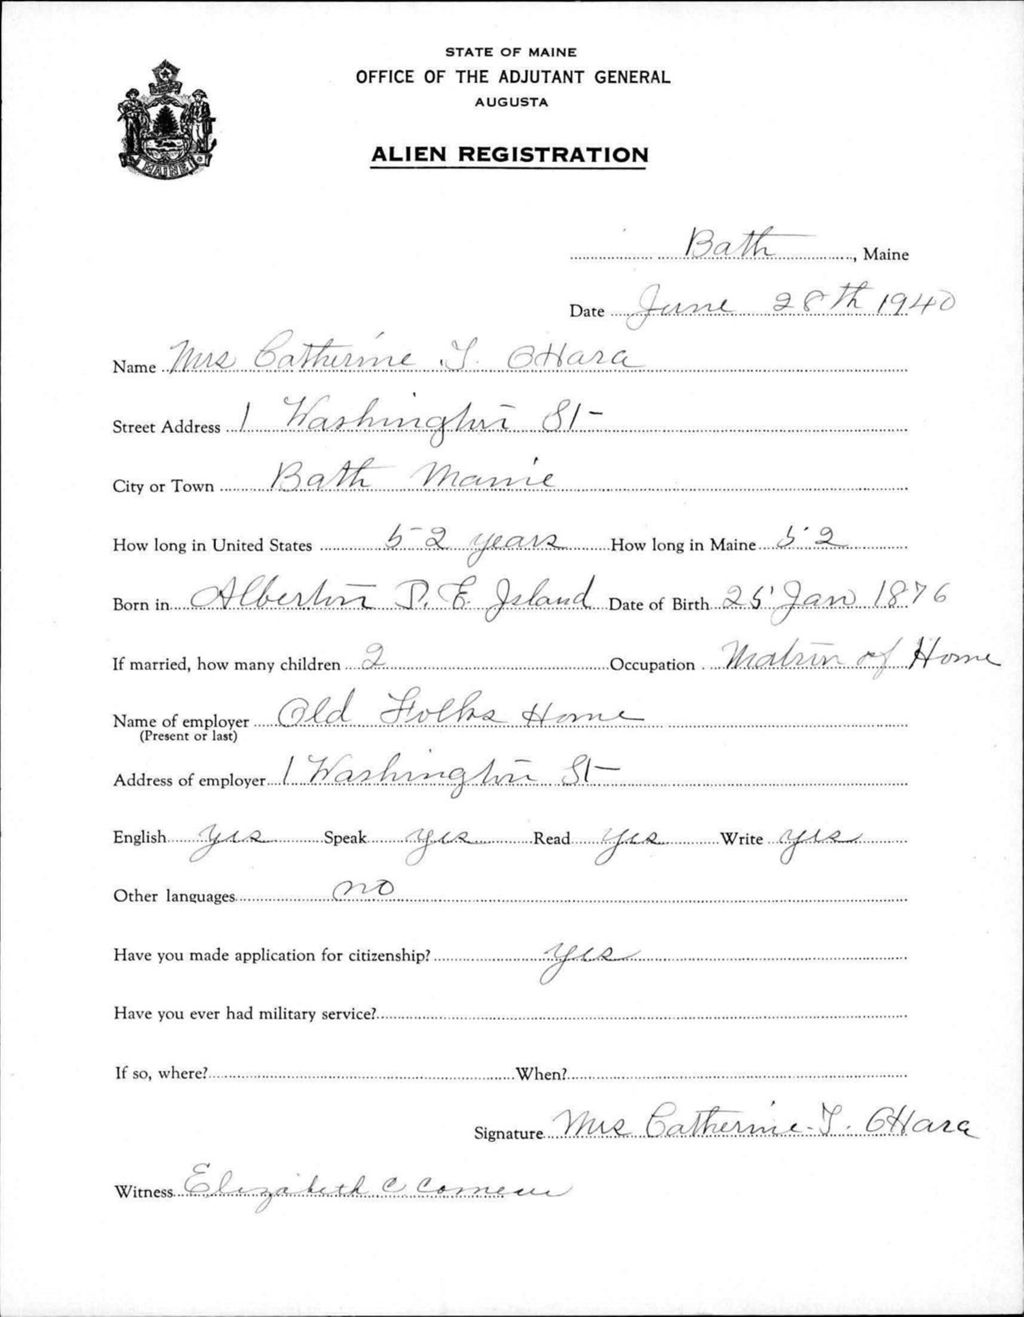 STATE OF MAINE
OFFICE OF THE ADJUTANT GENERAL
AUGUSTA
ALIEN REGISTRATION
MAINE
Bath, Maine
Date June 28th 1940
Name Mrs Catherine T. OHara
Street Address 1 Washington St
City or Town Bath Maine
How long in United States 52 years How long in Maine 52
Born in Alberton P. E. Island Date of Birth 25 Jan 1876
If married, how many children 2 Occupation Matron of Home
Name of employer Old Folks Home
(Present or last)
Address of employer 1 Washington St
English yes Speak yes Read yes Write yes
Other languages no
Have you made application for citizenship? yes
Have you ever had military service?
If so, where? When?
Signature Mrs Catherine T. OHara
Witness Elizabeth C Comeau